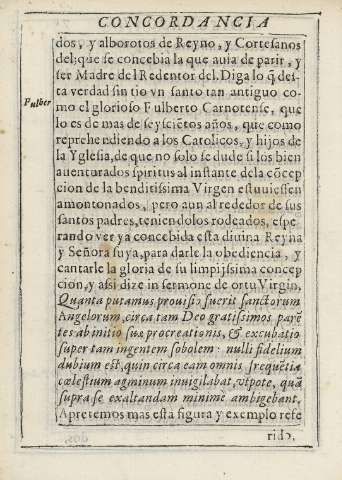 CONCORDANCIA
dos, y alborotos de Reyno, y Cortesanos
del; que se concebia la que auia de parir, y
ser Madre del Redentor del. Diga lo q̃ des
ta verdad sin tio vn santo tan antiguo co
Fulber
mo el glorioso Fulberto Carnotense, que
lo es de mas de seysciẽtos años, que como
reprehendiendo a los Catolicos, y hijos de
la Yglesia, de que no solo se dude si los bien
auenturados spiritus al instante dela cõcep
cion de la benditissima Virgen estuuiessen
amontonados, pero aun al rededor de sus
santos padres, teniendolos rodeados, espe
rando ver ya concebida esta diuina Reyna
y Señora suya, para darle la obediencia, y
cantarle la gloria de su limpissima concep
cion, y assi dize in sermone de ortu Virgin.
Quanta putamus prouisio fuerit sanctorum
Angelorum, circa tam Deo gratissimos parẽ
tes ab initio suæ procreationis, & excubatio
super tam ingentem sobolem. nulli fidelium
dubium est, quin circa eam omnis frequẽtia
cœlestium agminum inuigilabat, vtpote, quã
supra se exaltandam minimè ambigebant.
Apretemos mas esta figura y exemplo refe
rido,